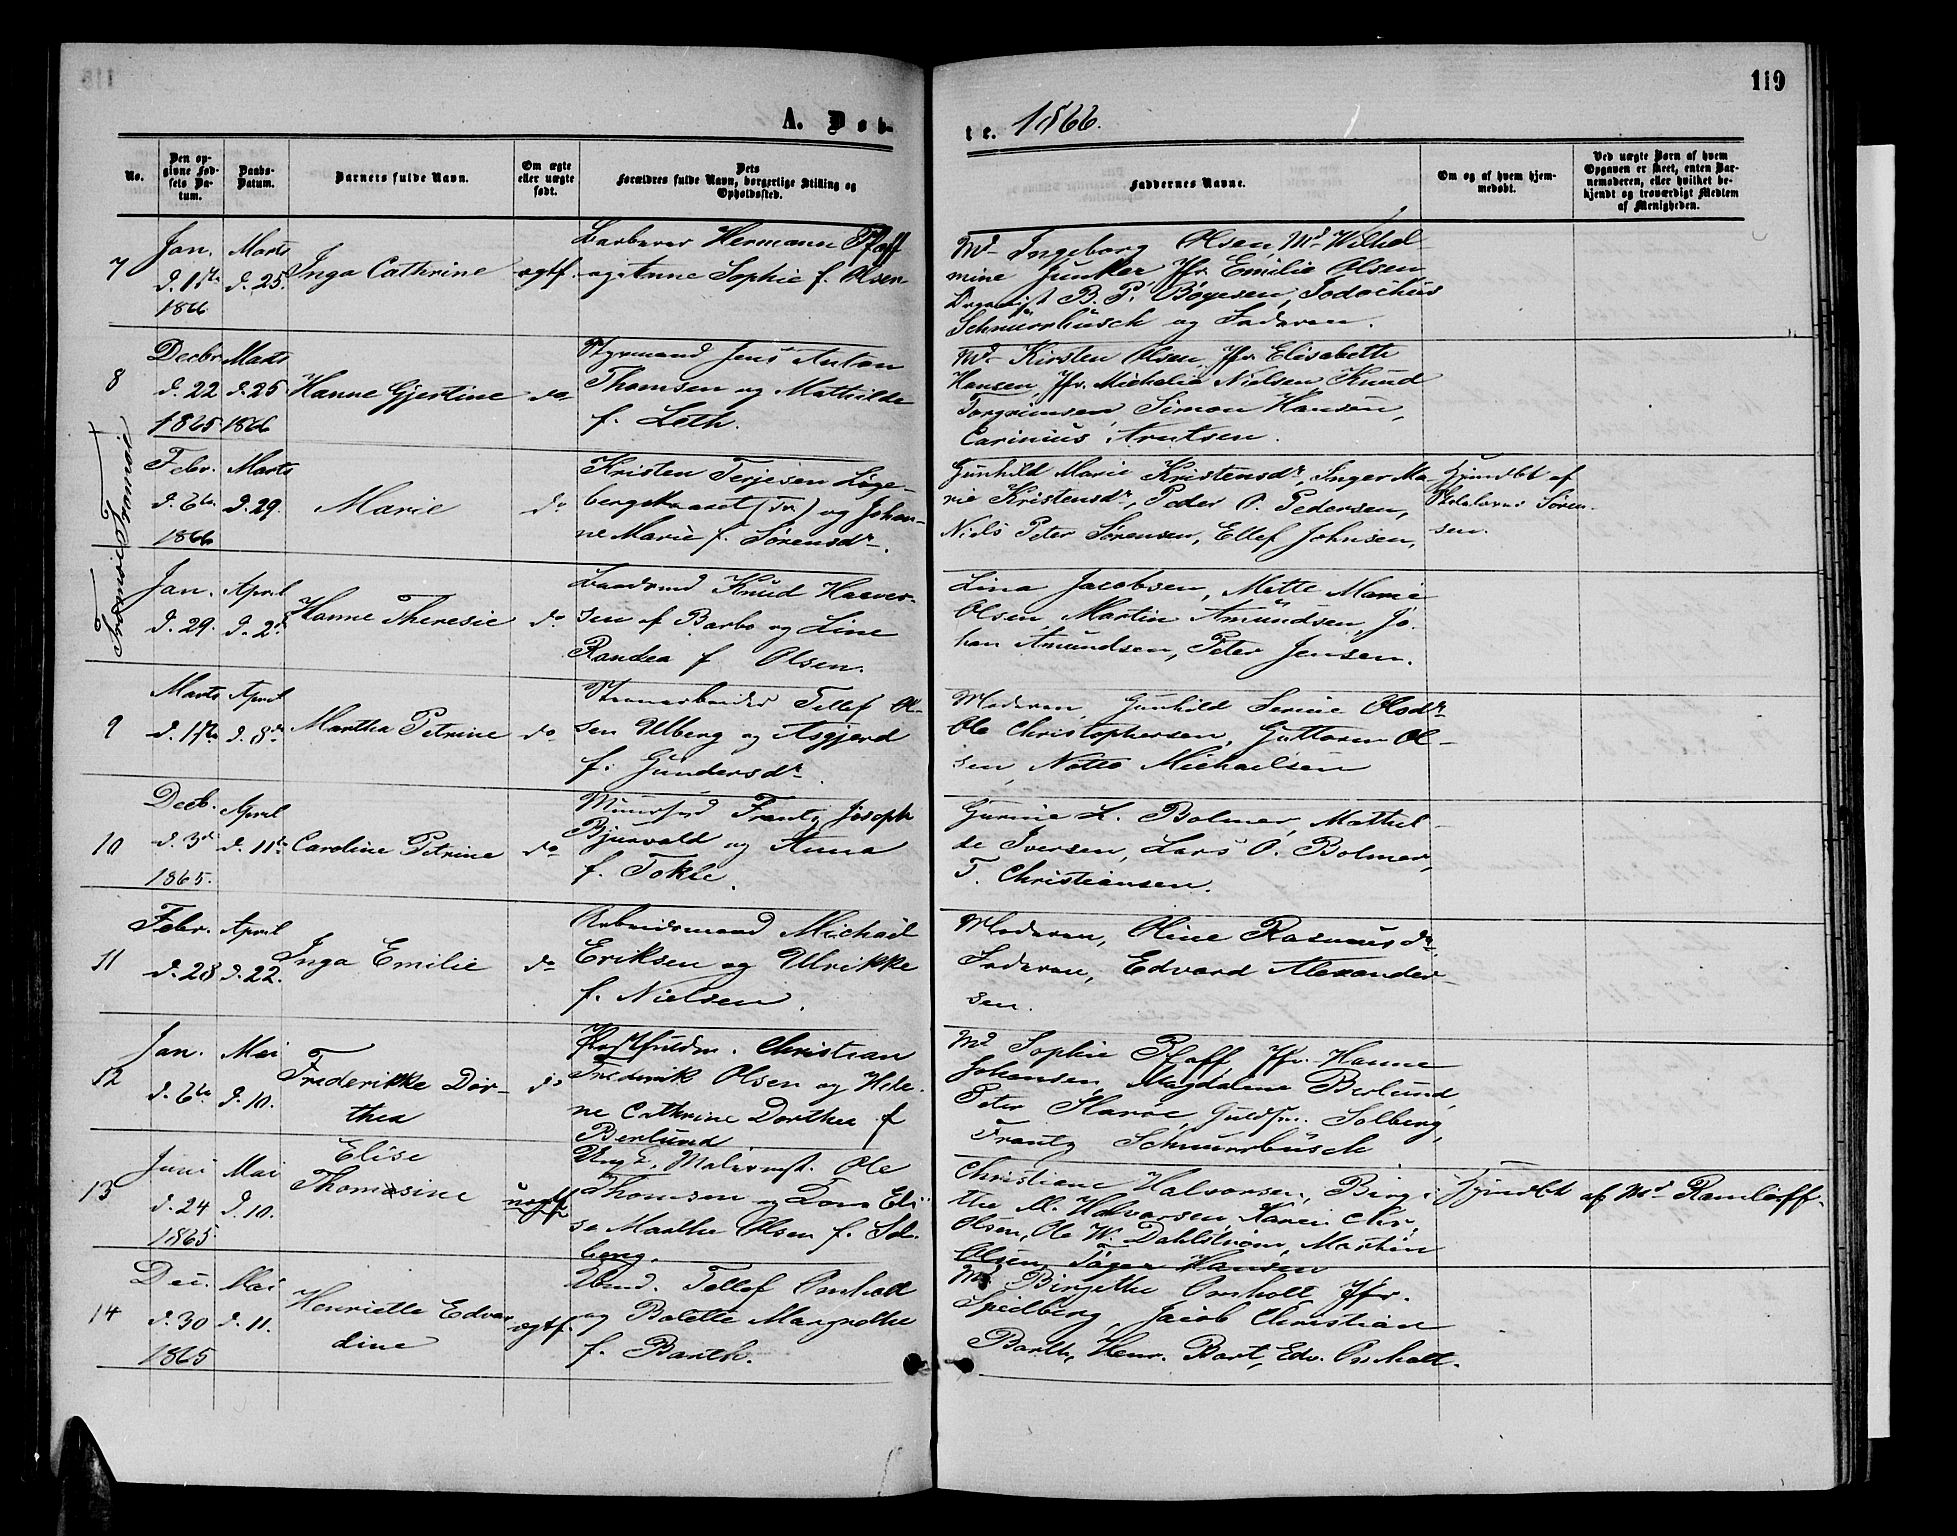 119
A. Døb-
te. 1866.
No.
Den op-
givne Fød-
sels Da-
tum.
Daabs-
Datum.
Barnets fulde Navn.
Om ægte
eller uægte
født.
Dets
Forældres fulde Navn, borgerlige Stilling og
Opholdssted.
Faddernes Navne.
Om og af hvem hjem-
medøbt.
Ved uægte Børn af hvem
Opgaven er skeet, enten Bar-
nemoderen, eller hvilket be-
kjendt og troværdigt Medlem
af Menigheden.
7
Jan.
d. 17de
1866
Marts
d. 25.
Inga Cathrine
ægtf.
Barberer Hermann Pfaff
og Anne Sophie f. Olsen
Md Ingeborg Olsen, Md Wilhel-
mine Junker Jfr. Emilie Olsen
Organist B. P. Bøyesen, Jodochus
Schnurrbusch og Faderen.
8
Decbr
d. 22
1865
Marts
d. 25
1866
Hanne Gjestine
do
Styrmand Jens Anton
Thomsen og Mathilde
f. Leth.
Md Kirsten Olsen, Jfr. Elisabeth
Hansen, Jfr. Michelia Nielsen, Knud
Torgrimsen, Simon Hansen,
Carinius Arntsen.
Tromøie
Febr.
d. 6te
1866
Marts
d. 29.
Marie
do
Kristen Terjesen Løge-
bergskaaset (Tr) og Johan-
ne Marie f. Sørensdr.
Gunhild Marie Kristensdr, Inger Ma-
rie Kristensdr, Peder O. Pedersen,
Niels Peter Sørensen, Ellef Johnsen,
Hjemdbt af
Skolelærer Søren-
sen.
Tromøie
Jan.
d. 29.
April
d. 2d
Hanne Theresie
do
Baadsmd Knud Haaver-
sen af Barbo og Line
Randea f. Olsen.
Lina Jacobsen, Mette Marie
Olsen, Martin Amundsen, Jo-
han Amundsen, Peter Jensen.
9
Marts
d. 17de
April
d. 8de
Martha Petrine
do
Steenarbeider Tellef Ol-
sen Ulberg og Asgjerd
f. Gundersdr.
Moderen, Gunhild Serine Olsdr
Ole Christophersen, Guttorm Ol-
sen, Notto Michaelsen
10
Decb.
d. 3de
1865.
April
d. 11te
Caroline Petrine
do
Muursvd Frantz Joseph
Bjurvald og Anna
f. Tokle.
Gurine L. Bolmer, Mathil-
de Iversen, Lars O. Bolmer,
T. Christiansen.
11
Febr.
d. 28
April
d. 22.
Inga Emilie
do
Arbeidsmand Michael
Eriksen og Ulrikke
f. Nielsen.
Moderen, Oline Rasmusdr
Faderen, Edvard Alexander-
sen.
12
Jan.
d. 6te
Mai
d. 10.
Frederikke Dor-
thea
do
Christian
Frederik Olsen og Hele-
ne Cathrine Dorthea f
Berlund
Md Sophie Pfaff, Jfr. Hanne
Johansen, Magdalene Berlund,
Peter Slaroe, Guldsm. Solberg,
Frantz Schnurrbusch
13
Juni
d. 24
1865
Mai
d. 10.
Elise
Thomasine
uægtf
Ung. Malersvd. Ole
Thomsen og Dom Eli-
se Marthe Olsen f. Sol-
berg.
Christiane Halvorsen, Birgi-
the M. Halvorsen, Karen Chr.
Olsen, Ole W. Dahlstrøm, Martin
Olsen, Tøger Hansen
Hjemdbt af Md Ramleff.
14
Dec.
d. 30
1865
Mai
d. 11.
Henriette Edvar-
dine
ægtf.
Tellef Omholt
og Bolette Margrethe
f. Barth.
Md Birgithe Omholt Jfr.
Speilberg, Jacob Christian
Barth, Henr. Bart, Edv. Omholt.